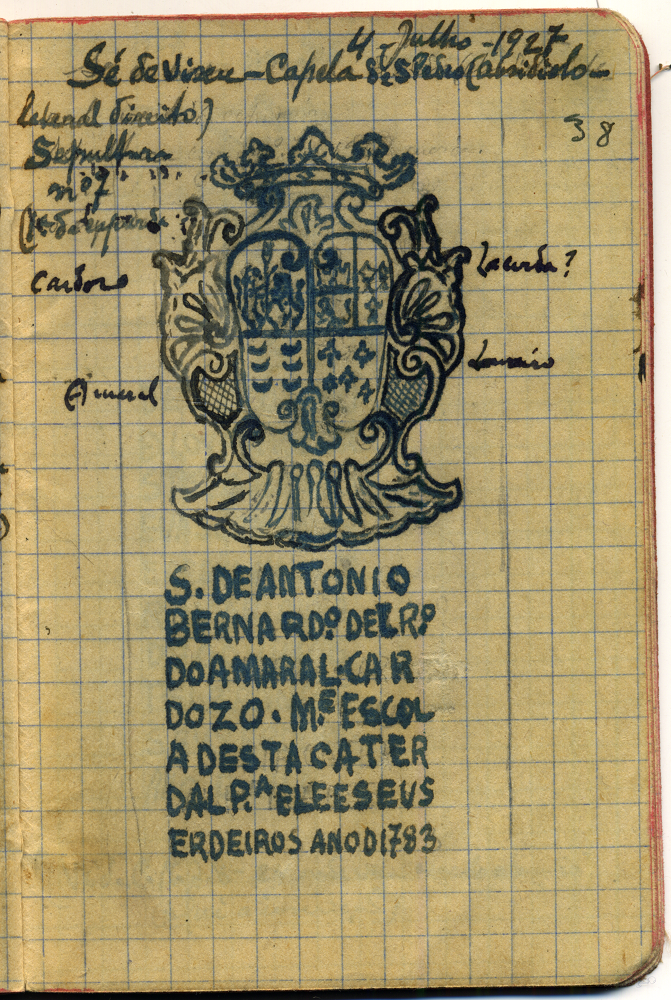 4 Julho - 1927
Sé de Viseu - Capela de S. Pedro (absidiolo
lateral direito)
38
Sepultura
nº 7
Cardoso
Lacerda?
Amaral
Loureiro
S. DE ANTONIO
BERNARDº DE LRº
DO AMARAL · CAR
DOZO · M.E ESCOL
A DESTA CATER
DAL P.A ELE E SEUS
ERDEIROS ANO D 1783